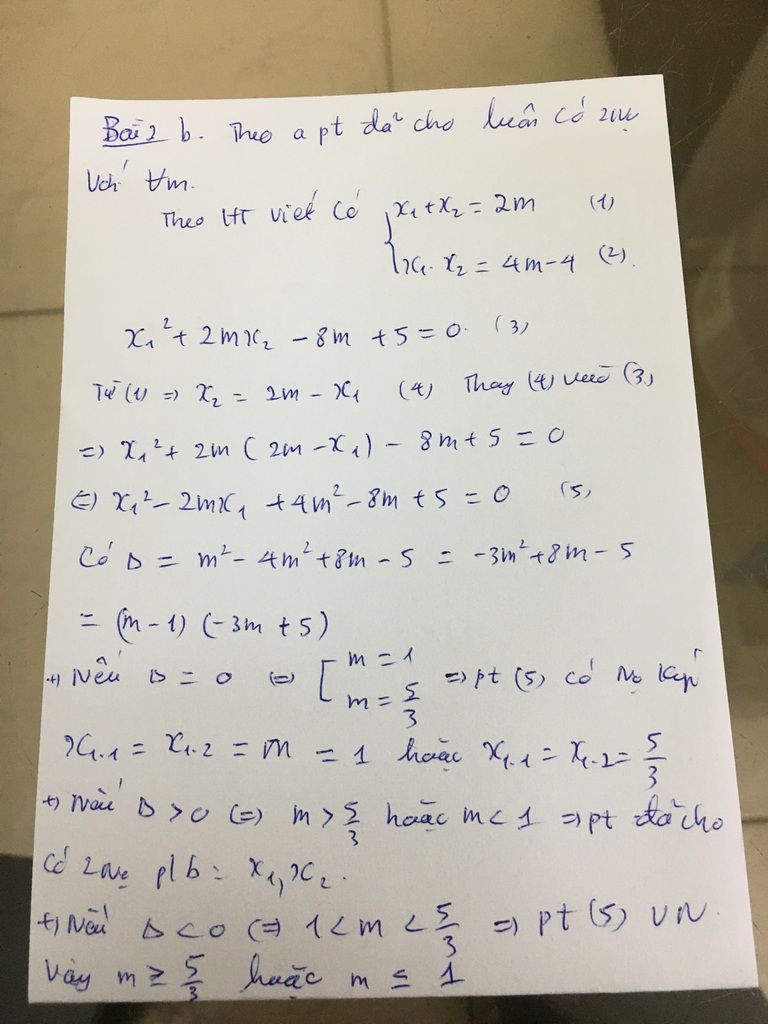 Bài 2 b. Theo a pt đã cho luôn có 2No
Với ∀m.
Theo HT Viét có { x₁+x₂ = 2m (1)
x₁. x₂ = 4m-4 (2).
x₁² + 2mx₂ - 8m + 5 = 0. (3)
Từ (1) => x₂ = 2m - x₁ (4) Thay (4) vào (3)
=) x₁² + 2m ( 2m - x₁) - 8m + 5 = 0
(=) x₁² - 2mx₁ + 4m² - 8m + 5 = 0 (5)
Có Δ = m² - 4m² + 8m - 5 = -3m² + 8m - 5
= (m-1) (-3m + 5)
+) Nếu Δ = 0 (=) [ m = 1
m = 5/3 => pt (5) có No kép
x₁.₁ = x₁.₂ = m = 1 hoặc x₁.₁ = x₁.₂ = 5/3
+) Nếu Δ > 0 (=) m > 5/3 hoặc m < 1 => pt đã cho
có 2No p/b = x₁, x₂.
+) Nếu Δ < 0 (=) 1 < m < 5/3 =) pt (5) VN.
Vậy m ≥ 5/3 hoặc m ≤ 1